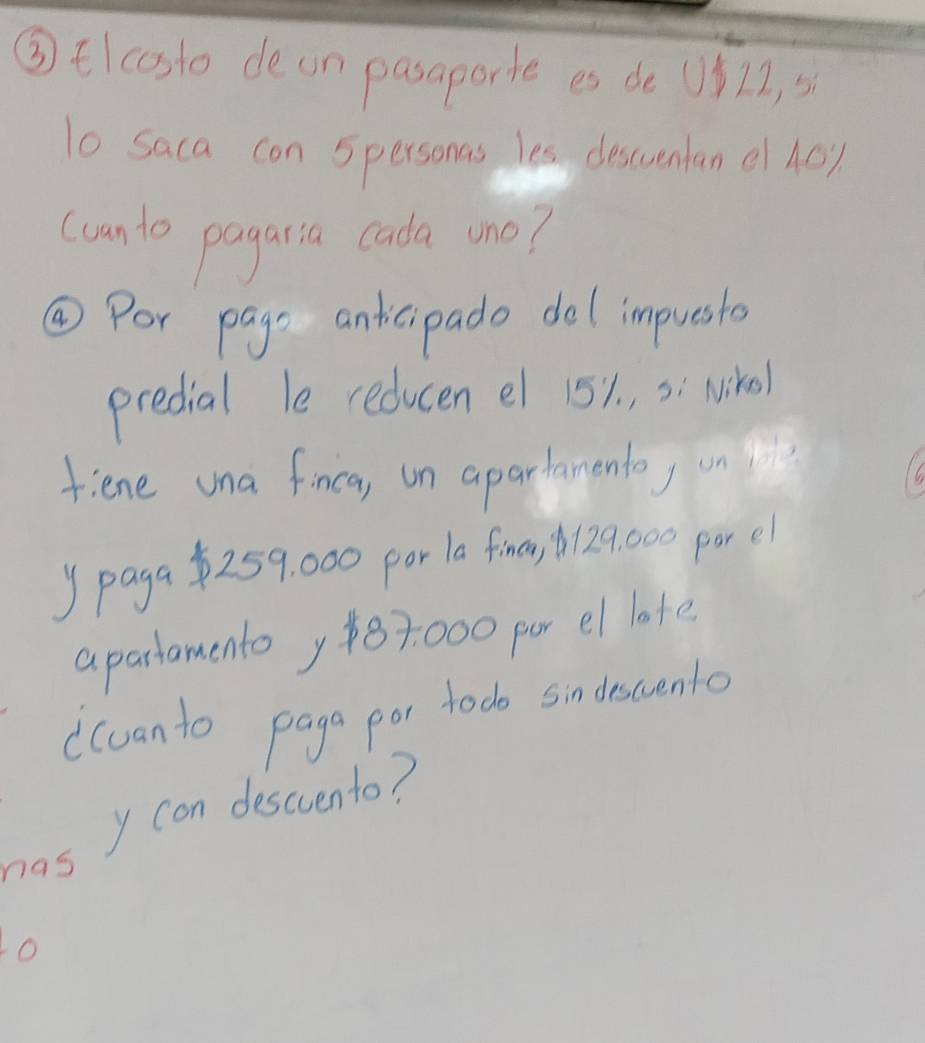 ③ El costo de un pasaporte es de U$22, si
lo saca con 5 personas les descuentan el 40%
Cuanto pagaria cada uno?
④ Por pago anticipado del impuesto
predial le reducen el 15%, si Nikol
tiene una finca, un apartamento y un lote
y paga $259.000 por la finca, $129.000 por el
apartamento y $87.000 por el lote
¿Cuanto paga por todo sin descuento
y con descuento?
nas
to